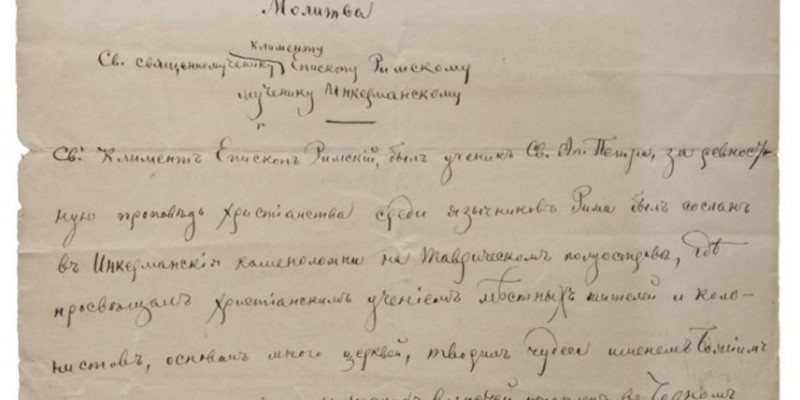 Молитва
Клименту
Св. священномученику Епископу Римскому
мученику Инкерманскому
Св. Климентъ Епископъ Римскій, былъ ученикъ Св. Ап. Петра, за ревност-
ную проповѣдь христіанства среди язычниковъ Рима былъ сосланъ
въ Инкерманскія каменоломни на Таврическомъ полуостровѣ, гдѣ
просвѣщалъ христіанскимъ ученіемъ мѣстныхъ жителей и коло-
нистовъ, основалъ много церквей, творилъ чудеса именемъ Божіимъ
въ Черномъ